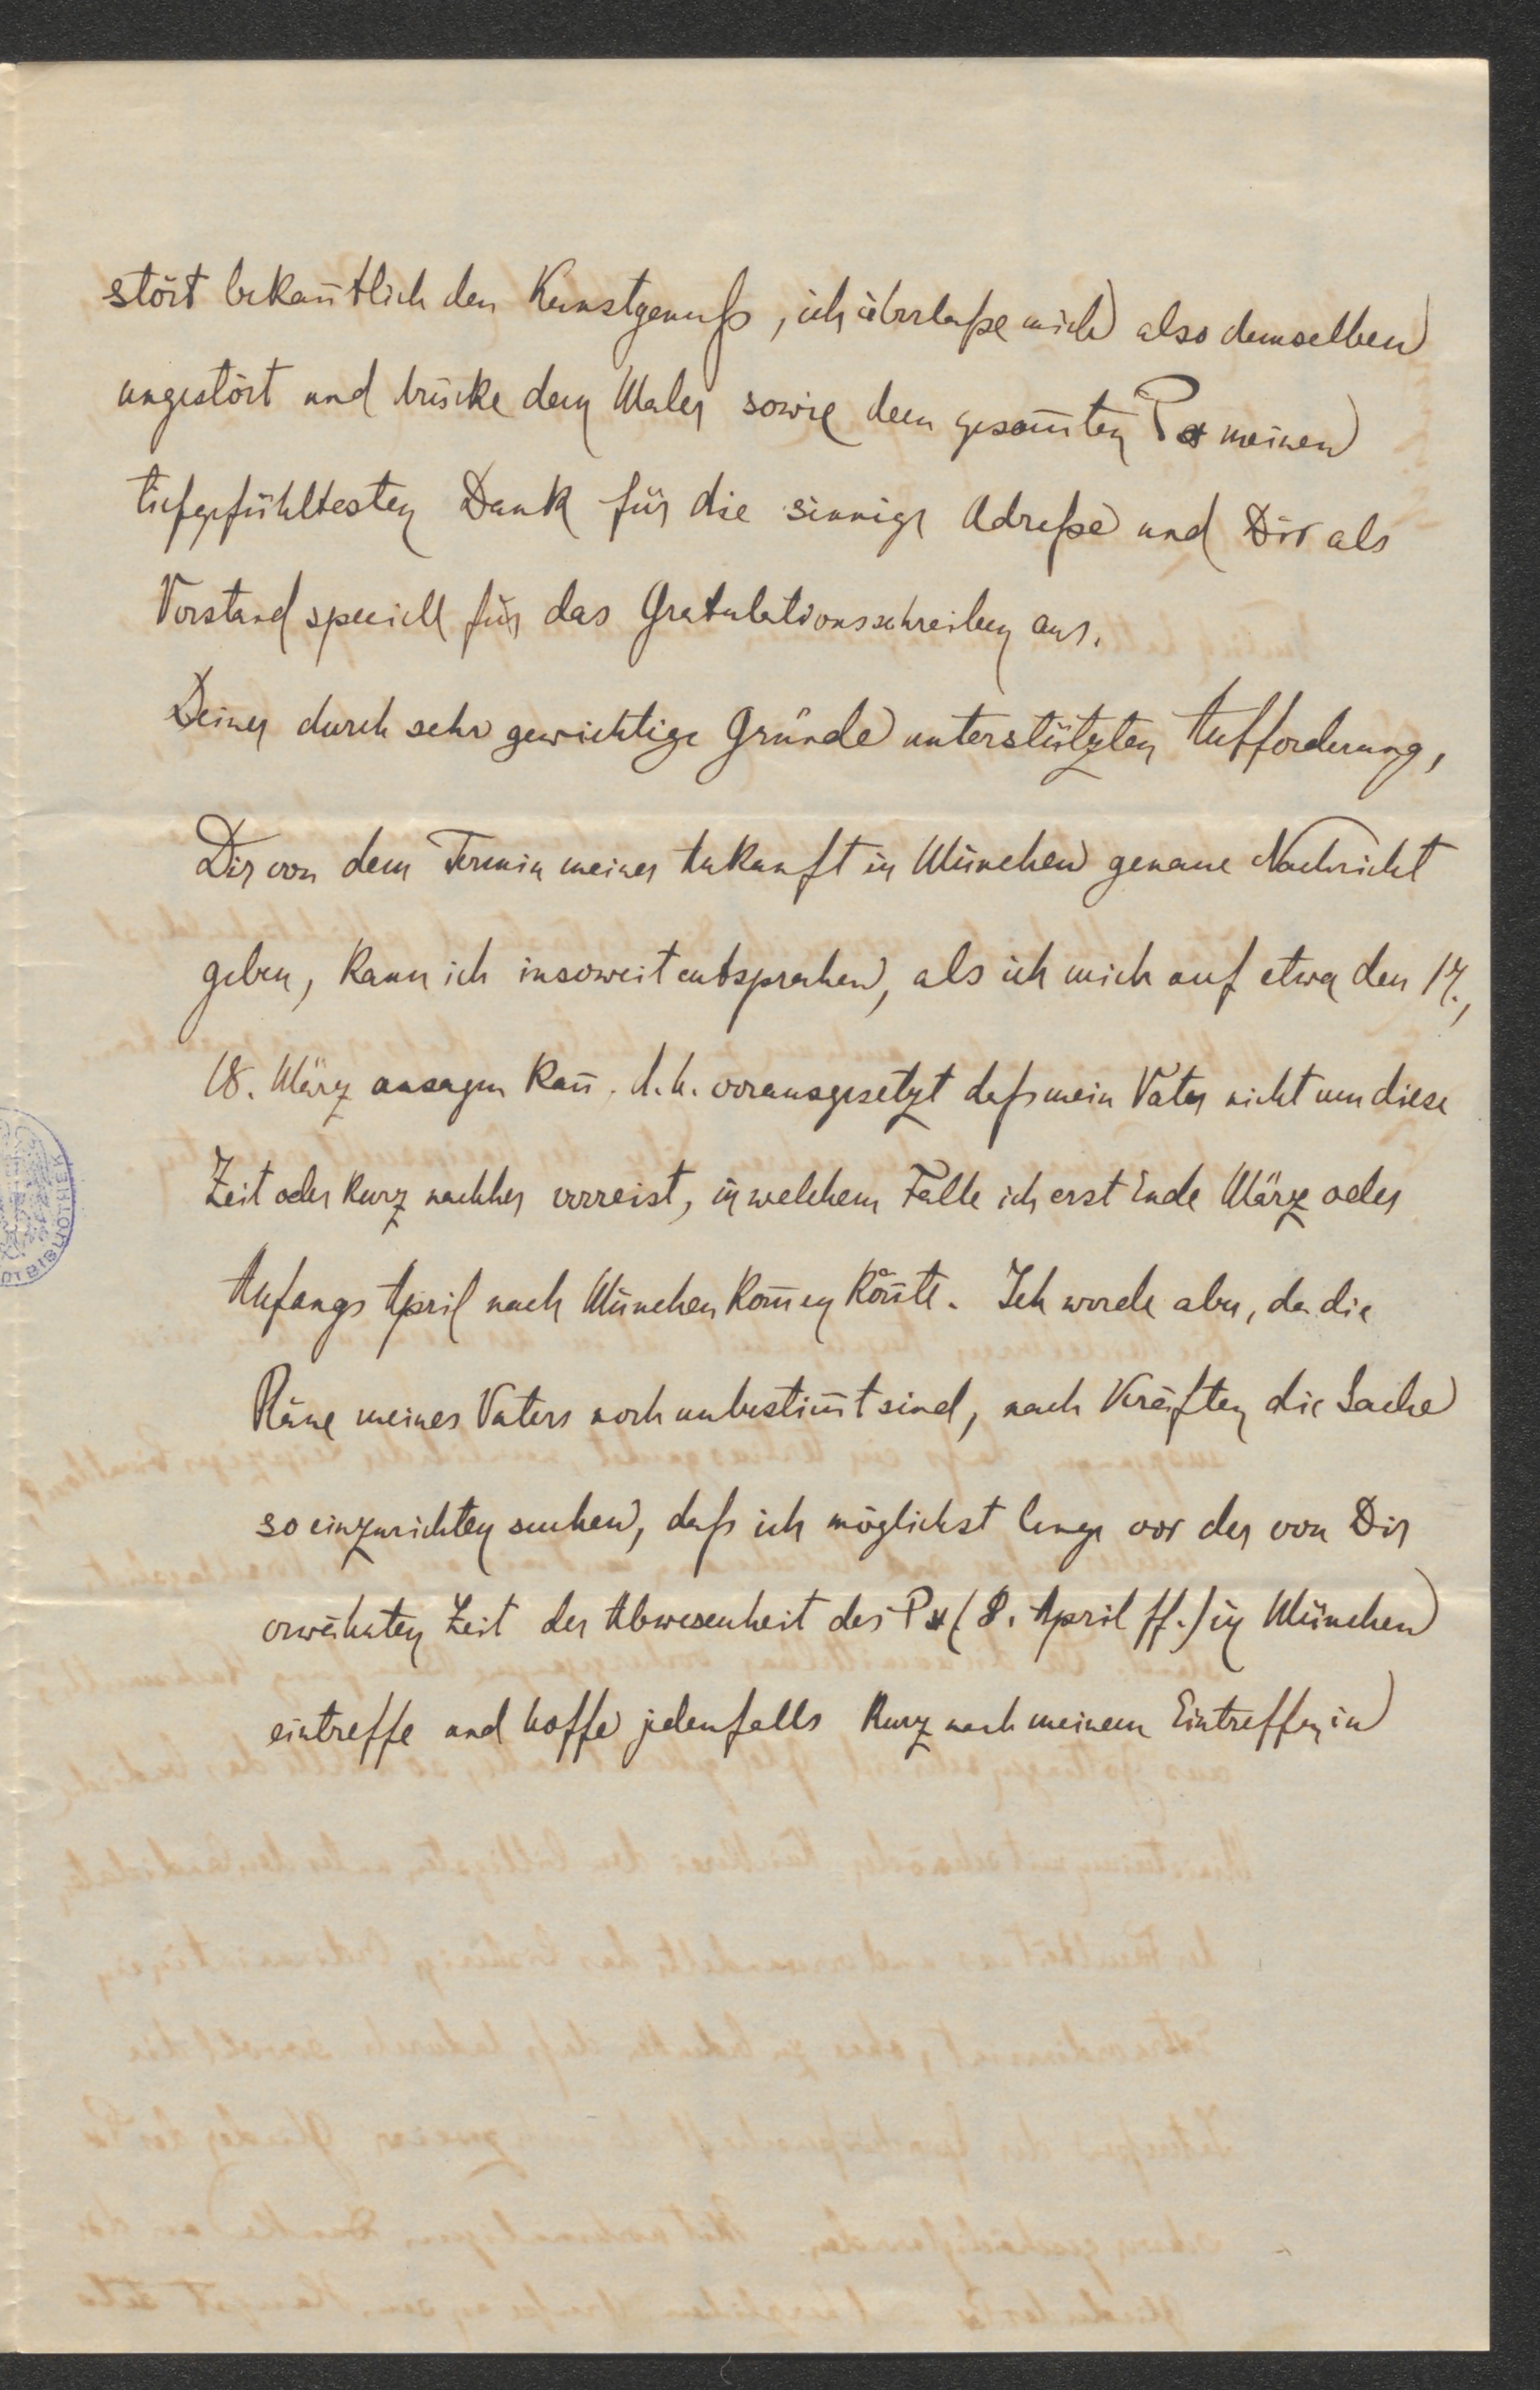 stört bekan̄tlich den Kunstgenuß, ich überlaße mich also demselben
ungestört und drücke dem Maler sowie dem gesam̄ten P* meinen
tiefgefühltesten Dank für die sinnige Adreße und Dir als
Vorstand speciell für das Gratulationsschreiben aus.
Deiner durch sehr gewichtige Gründe unterstützten Aufforderung,
Dir von dem Termin meiner Ankunft in München genaue Nachricht
geben, kann ich insoweit entsprechen, als ich mich auf etwa den 17.,
18. März ansagen kan̄. d. h. vorausgesetzt daß mein Vater nicht um diese
Zeit oder kurz nachher verreist, in welchem Falle ich erst Ende März oder
Anfangs April nach München kom̄en kön̄te. Ich werde aber, da die
Pläne meines Vaters noch unbestim̄t sind, nach Kräften die Sache
so einzurichten suchen, daß ich möglichst lange vor der von Dir
erwähnten Zeit der Abwesenheit des P* (8. April ff.) in München
eintreffe und hoffe jedenfalls kurz nach meinem Eintreffen in